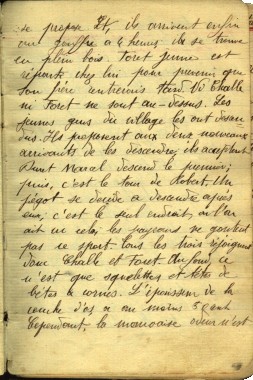 se propose. Et, ils arrivent enfin
au gouffre à 4 heures ils se trouve
en plein bois. Foret Jeune est
reparti chez lui pour prevenir que
son frère Challe
ni Foret ne sont au-dessus. Les
jeunes gens du village les ont descen
dus. Ils proposent aux deux nouveaux
arrivants de les descendre, ils acceptent
Marcel descend le premier;
puis, c'est le tour de Robert. Un
se decide a descendre après
eux, c'est le seul endroit, où l'on
ait un les paysans ne goutent
pas ce sport tous les trois rejoignent
donc Challe et Foret. Au fond, ce
n'est que squelettes et têtes de
bêtes a cornes. L'épaisseur de la
couche d'os a au moins
Cependant la mauvaise odeur n'est